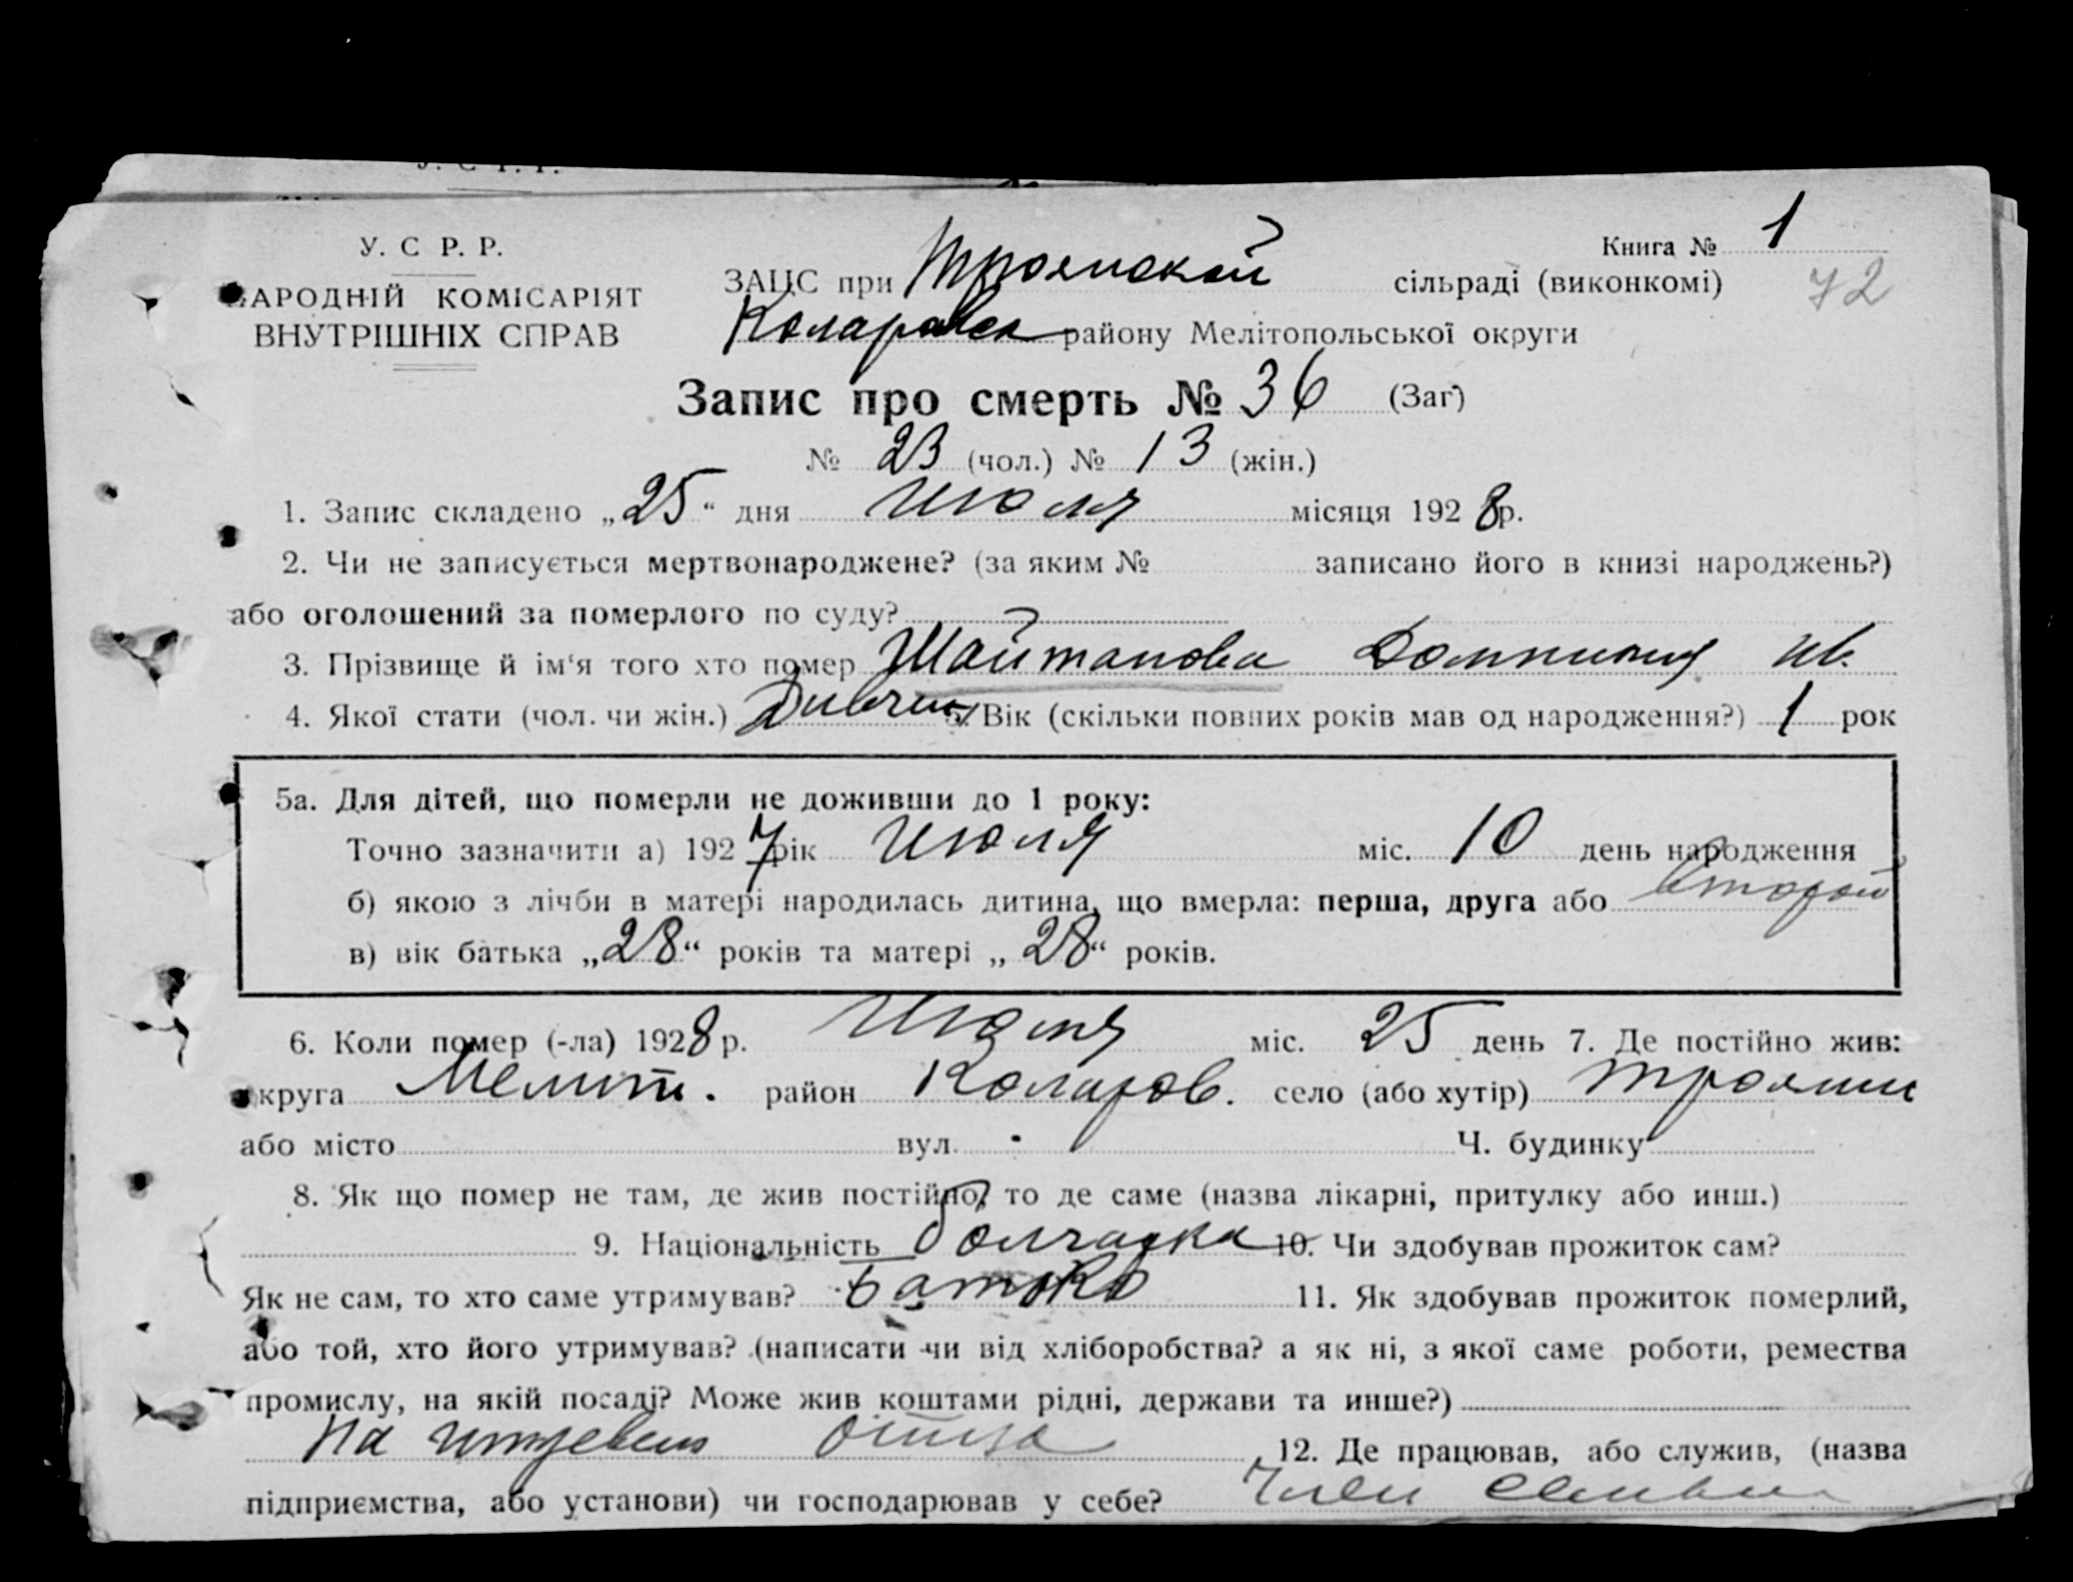 У. С. Р. Р.
Книга № 1
НАРОДНІЙ КОМІСАРІЯТ
ВНУТРІШНІХ СПРАВ
ЗАЦС при Троянской сільраді (виконкомі)
72
Коларовск району Мелітопольської округи
Запис про смерть № 36 (Заг)
№ 23 (чол.) № 13 (жін.)
1. Запис складено „25“ дня Июля місяця 1928р.
2. Чи не записується мертвонароджене? (за яким № записано його в книзі народжень?)
або оголошений за померлого по суду?
3. Прізвище й ім‘я того хто помер Шайтанова Домникия Ив.
4. Якої стати (чол. чи жін.) Дивчин 5. Вік (скільки повних років мав од народження?) 1 рок
5а. Для дітей, що померли не доживши до 1 року:
Точно зазначити а) 1927 рік Июля міс. 10 день народження
б) якою з лічби в матері народилась дитина, що вмерла: перша, друга або второй
в) вік батька „28“ років та матері „28“ років.
6. Коли помер (-ла) 1928 р. Июля міс. 25 день 7. Де постійно жив:
округа Мелит. район Коларов. село (або хутір) Трояни
або місто вул. Ч. будинку
8. Як що помер не там, де жив постійно, то де саме (назва лікарні, притулку або инш.)
9. Національність болгарка 10. Чи здобував прожиток сам?
Як не сам, то хто саме утримував? Батько 11. Як здобував прожиток померлий,
або той, хто його утримував? (написати чи від хліборобства? а як ні, з якої саме роботи, ремества
промислу, на якій посаді? Може жив коштами рідні, держави та инше?)
На иждевен отца 12. Де працював, або служив, (назва
підприємства, або установи) чи господарював у себе? Член семьи